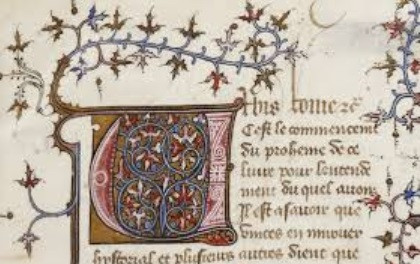 C'est le commencement
du proheme de ce
livre pour lentende
ment du quel avons
Il est assavoir que
en miroer
hystorial et plusieurs autres dient que